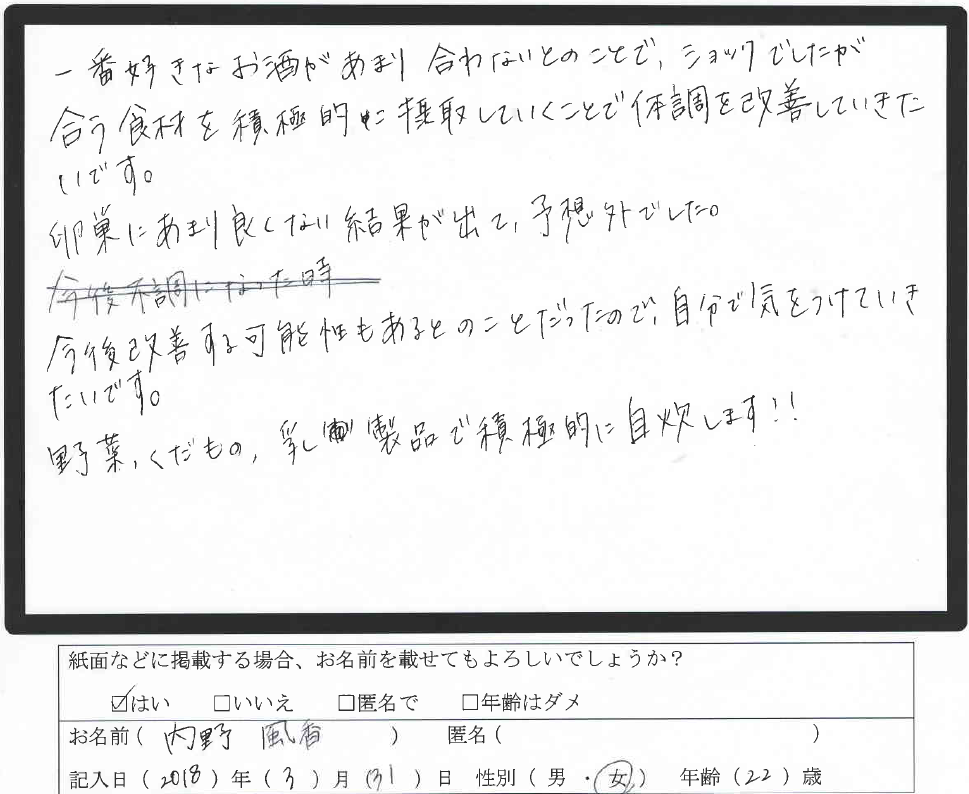 一番好きなお酒があまり合わないとのことで、ショックでしたが
合う食材を積極的に摂取していくことで体調を改善していきた
いです。
卵巣にあまり良くない結果が出て、予想外でした。
今後不調になった時
今後改善する可能性もあるとのことだったので、自分で気をつけていき
たいです。
野菜、くだもの、乳製品で積極的に自炊します!!
紙面などに掲載する場合、お名前を載せてもよろしいでしょうか?
☑はい □いいえ □匿名で □年齢はダメ
お名前( 内野 風香 ) 匿名( )
記入日(2018)年(3)月(31)日 性別(男・女) 年齢(22)歳